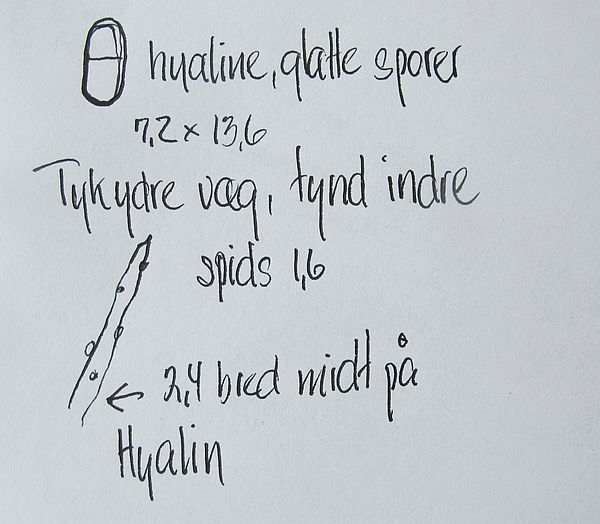 hyaline, glatte sporer
7,2 x 13,6
Tyk ydre væg, tynd indre
spids 1,6
2,4 bred midt på
Hyalin